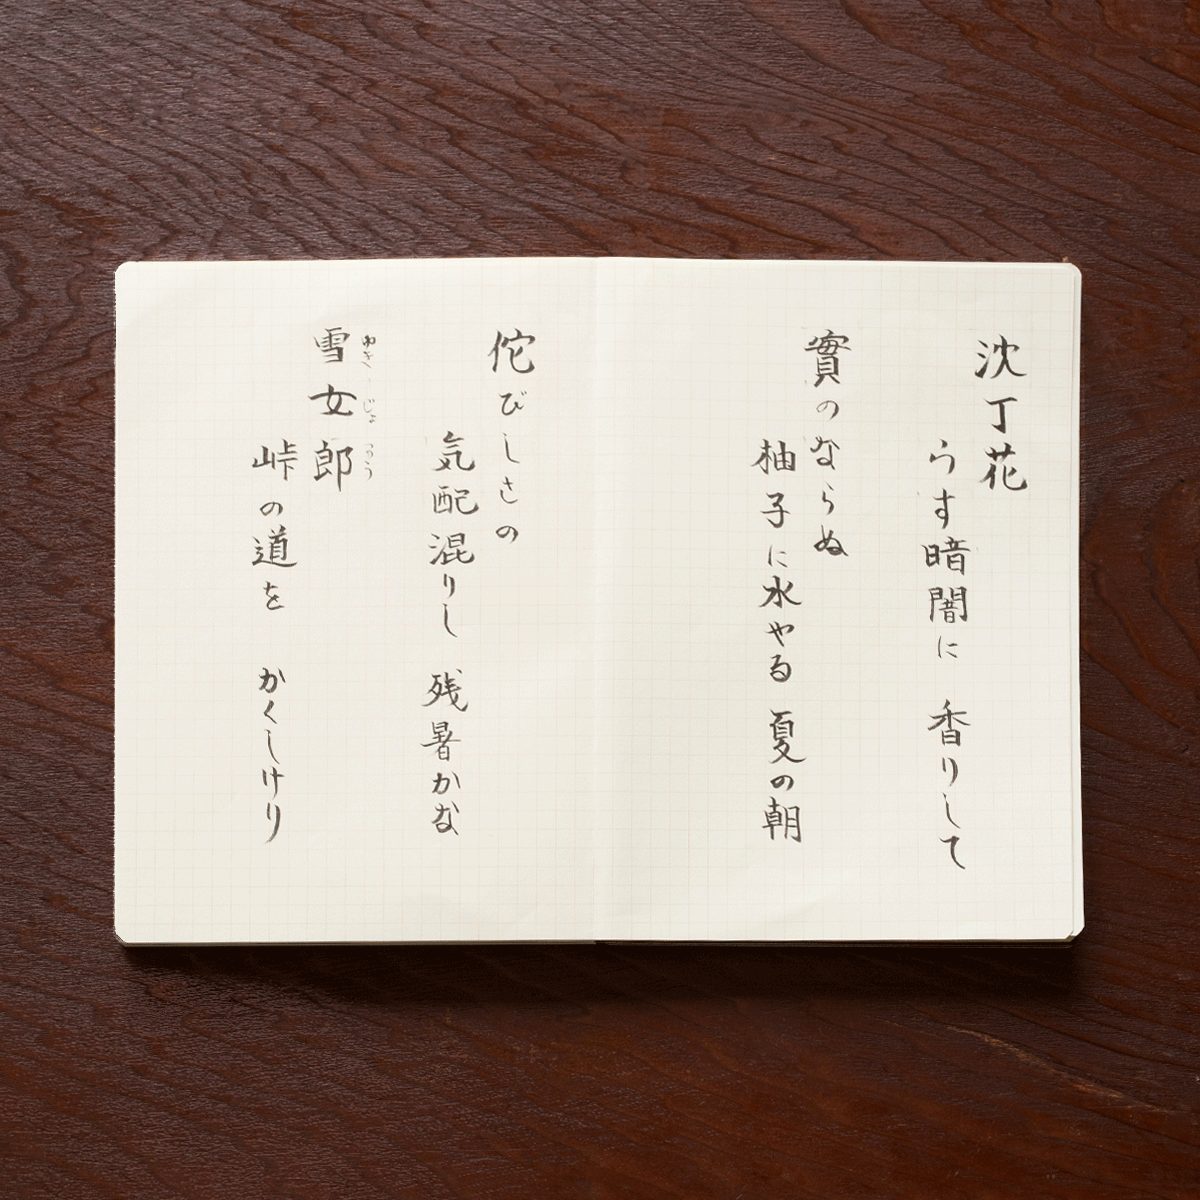 沈丁花
うす暗闇に 香りして
實のならぬ
柚子に水やる 夏の朝
侘びしさの
気配混りし 残暑かな
雪女郎
ゆき じょ ろう
峠の道を かくしけり